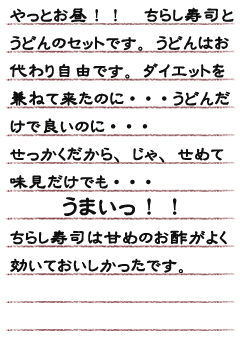 やっとお昼！！　ちらし寿司と
うどんのセットです。うどんはお
代わり自由です。ダイエットを
兼ねて来たのに・・・うどんだ
けで良いのに・・・
せっかくだから、じゃ、せめて
味見だけでも・・・
うまいっ！！
ちらし寿司は甘めのお酢がよく
効いておいしかったです。